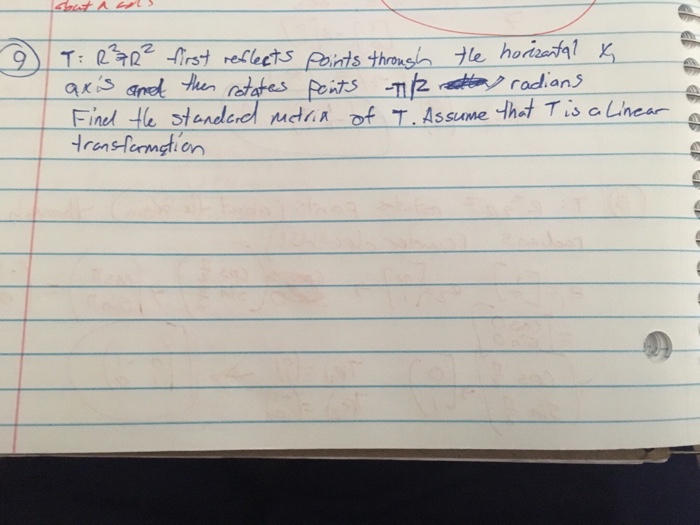 about n
9 T: R²→R² first reflects points through the horizontal x₁
axis and then rotates points -π/2 radians
Find the standard matrix of T. Assume that T is a Linear
transformation